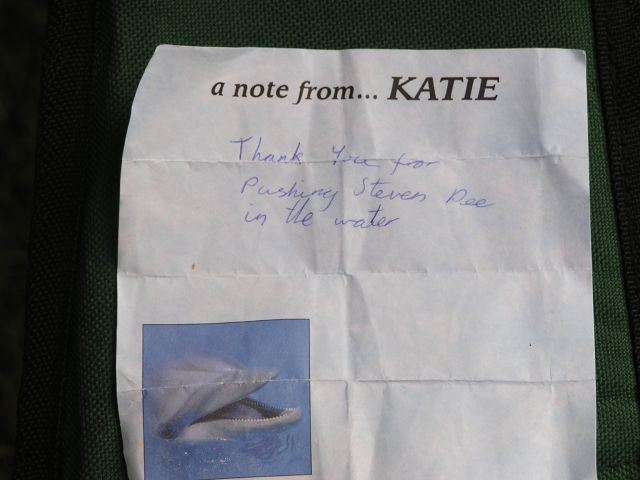 a note from... KATIE
Thank You for
Pushing Steven Dee
in the water